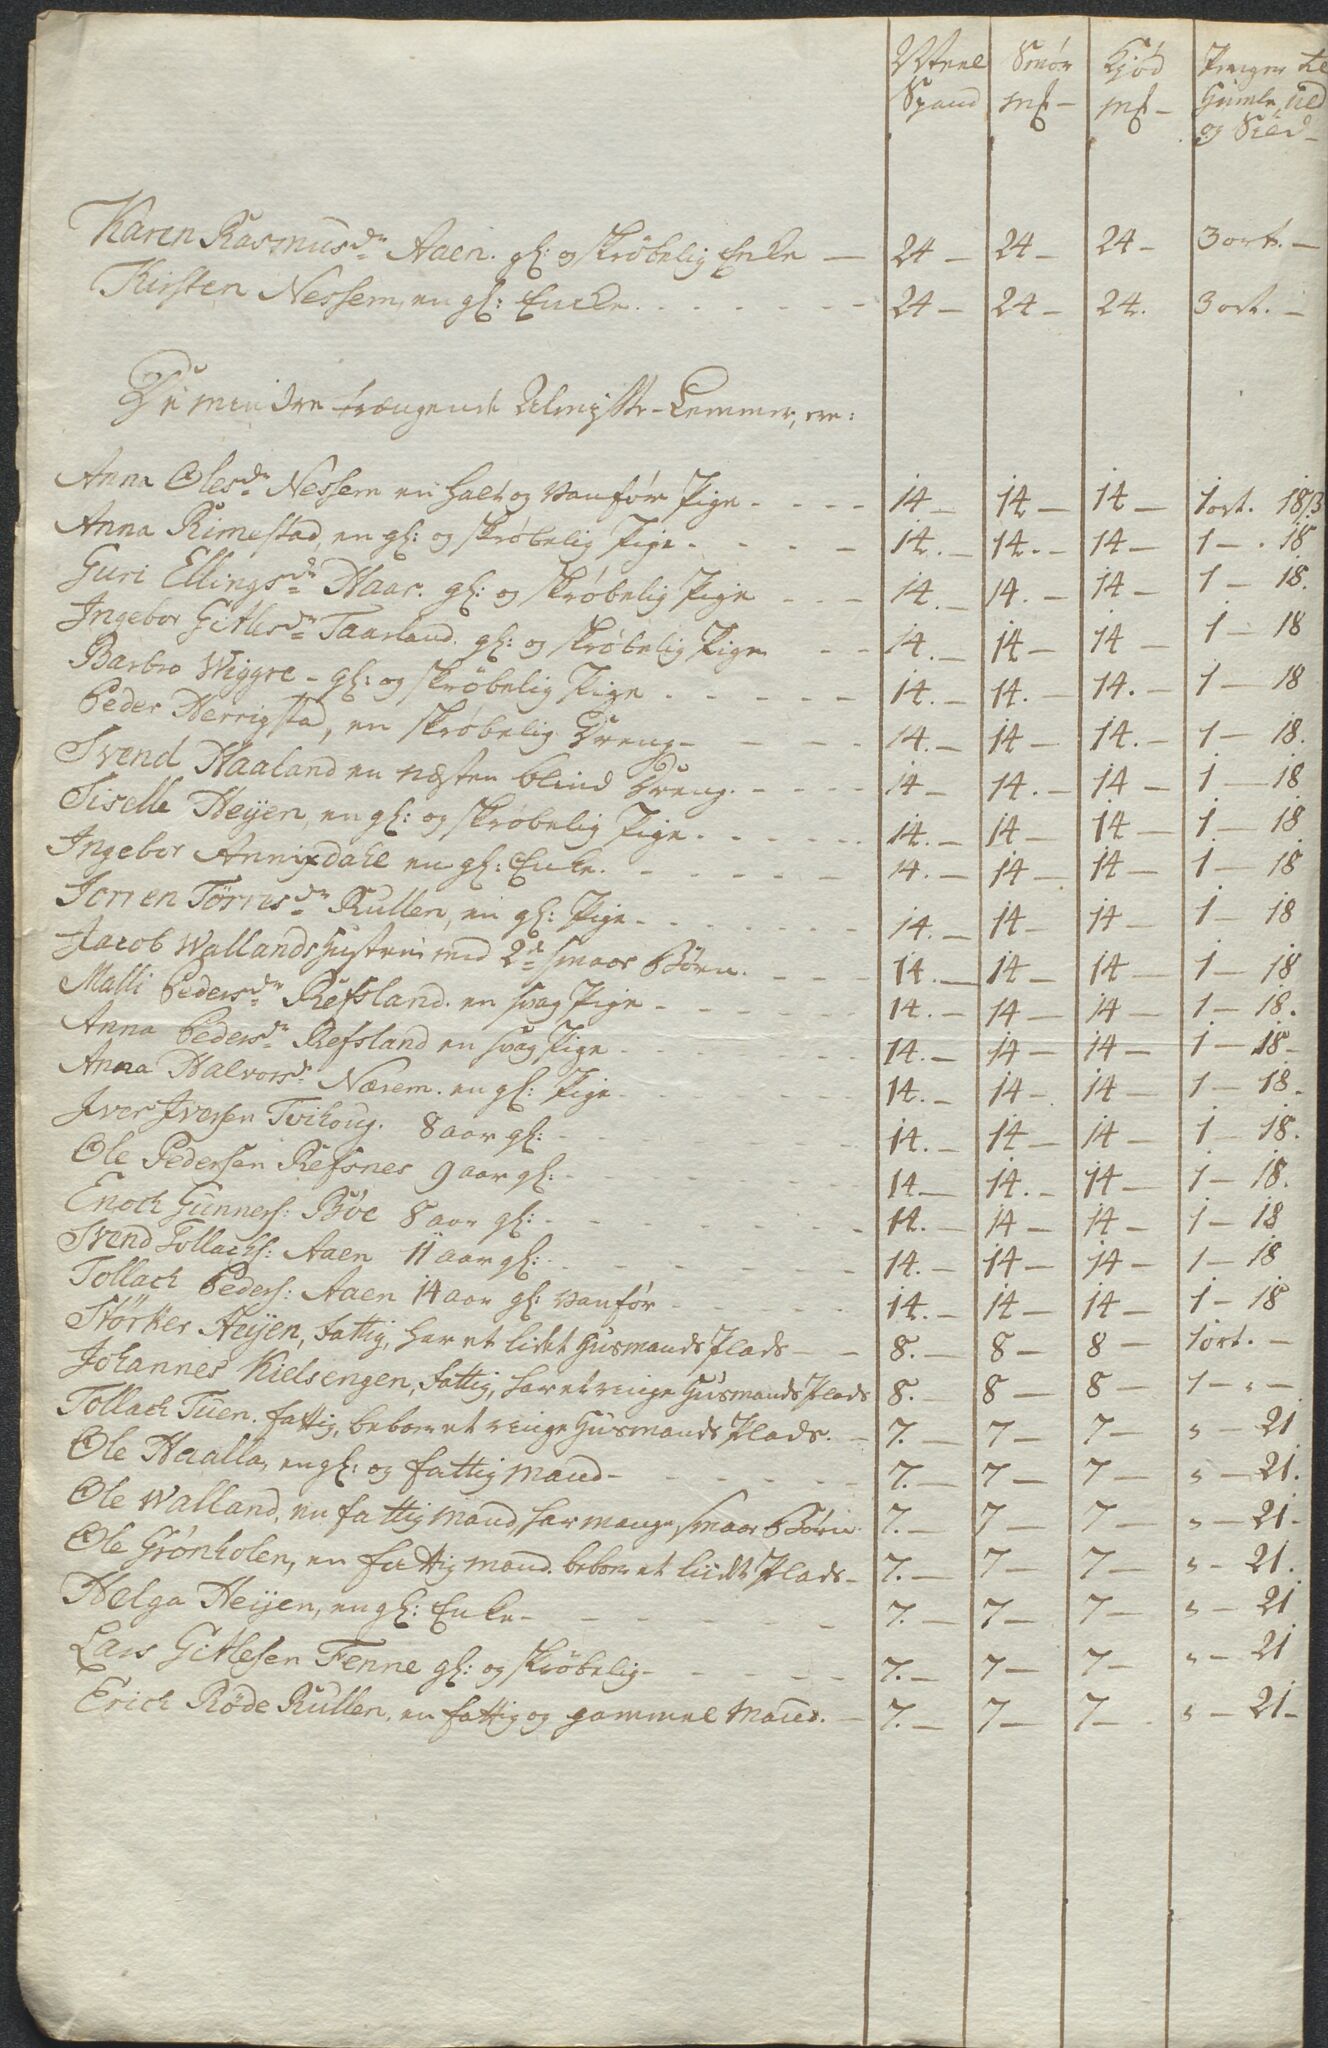 Meel Smør Kjød Penger til
Spand mk - mk - Humle, Uld
og Sild -
Karen Rasmusdr Aaen. gl: og skrøbelig Enke — 24 — 24 — 24 — 3 ort. —
Kirsten Nessem, en gl: Encke. - - - - - 24 — 24 — 24. 3 ort. —
De mindre trængende Almisse-Lemmer, ere:
Anna Olesdr Nessem en halt og vanfør Pige - - - - 14 — 14 — 14 — 1 ort. 18 β
Anna Rimestad, en gl: og skrøbelig Pige - - - - 14. — 14. — 14 — 1 — . 18
Guri Ellingsdr Haar. gl: og skrøbelig Pige - - - 14. — 14. — 14 — 1 — 18.
Ingebor Gitlesdr Taarland. gl: og skrøbelig Pige - - 14. — 14 — 14 — 1 — 18
Barbro Wiggre - gl: og skrøbelig Pige - - - - - 14. — 14. — 14. — 1 — 18
Peder Herrigstad, en skrøbelig Dreng - - - - 14. — 14 — 14. — 1 — 18.
Svend Haaland en næsten blind Dreng. - - - - 14 — 14. — 14 — 1 — 18
Siselle Heijen, en gl: og skrøbelig Pige. - - - - - 14. — 14 — 14 — 1 — 18
Ingebor Annixdahl en gl: Enke. - - - - - - 14. — 14 — 14 — 1 — 18
Jorren Tørresdr Rullen, en gl: Pige - - - - - - 14. — 14 — 14 — 1 — 18
Jacob Wallands Hustru med 2de smaae Børn. - - - 14. — 14 — 14 — 1 — 18
Malli Pedersdr Refsland. en svag Pige - - - - - - 14. — 14 — 14 — 1 — 18.
Anna Pedersdr Refsland en svag Pige - - - - - - 14. — 14 — 14 — 1 — 18 -
Anna Halvorsdr Nærem. en gl: Pige - - - - - - 14. — 14 — 14 — 1 — 18.
Iver Iversen Tvihoug. 8 aar gl: - - - - - - 14. — 14 — 14 — 1 — 18.
Ole Pedersen Refsnes 9 aar gl: - - - - - - 14 — 14. — 14 — 1 — 18.
Enoch Gunners: Bøe 8 aar gl: - - - - - - 14. — 14 — 14 — 1 — 18
Svend Tollachs: Aaen 11 aar gl: - - - - - - 14. — 14 — 14 — 1 — 18
Tollach Peders: Aaen 14 aar gl: vanfør - - - - - 14. — 14 — 14 — 1 — 18
Størker Heijen, fattig, har et lidet Huusmands Plads - - 8. — 8 — 8 — 1 ort. —
Johannes Kielsengen, fattig, har et ringe Huusmands Plads 8. — 8 — 8 — 1 — " —
Tollach Tuen. fattig, beboer et ringe Huusmands Plads. - 7. — 7 — 7 — " — 21
Ole Haalla, en gl: og fattig Mand - - - - - - 7. — 7 — 7 — " — 21.
Ole Walland, en fattig Mand, har mange smaae Børn 7. — 7 — 7 — " — 21 -
Ole Grønholen, en fattig Mand. beboer et lidet Plads - 7. — 7 — 7 — " — 21.
Helga Heijen, en gl: Enke - - - - - - 7. — 7 — 7 — " — 21
Lars Gitlesen Fenne gl: og skrøbelig - - - - - 7. — 7 — 7 — " — 21
Erich Røde Rullen, en fattig og gammel Mand. — 7. — 7 — 7 — " — 21 -